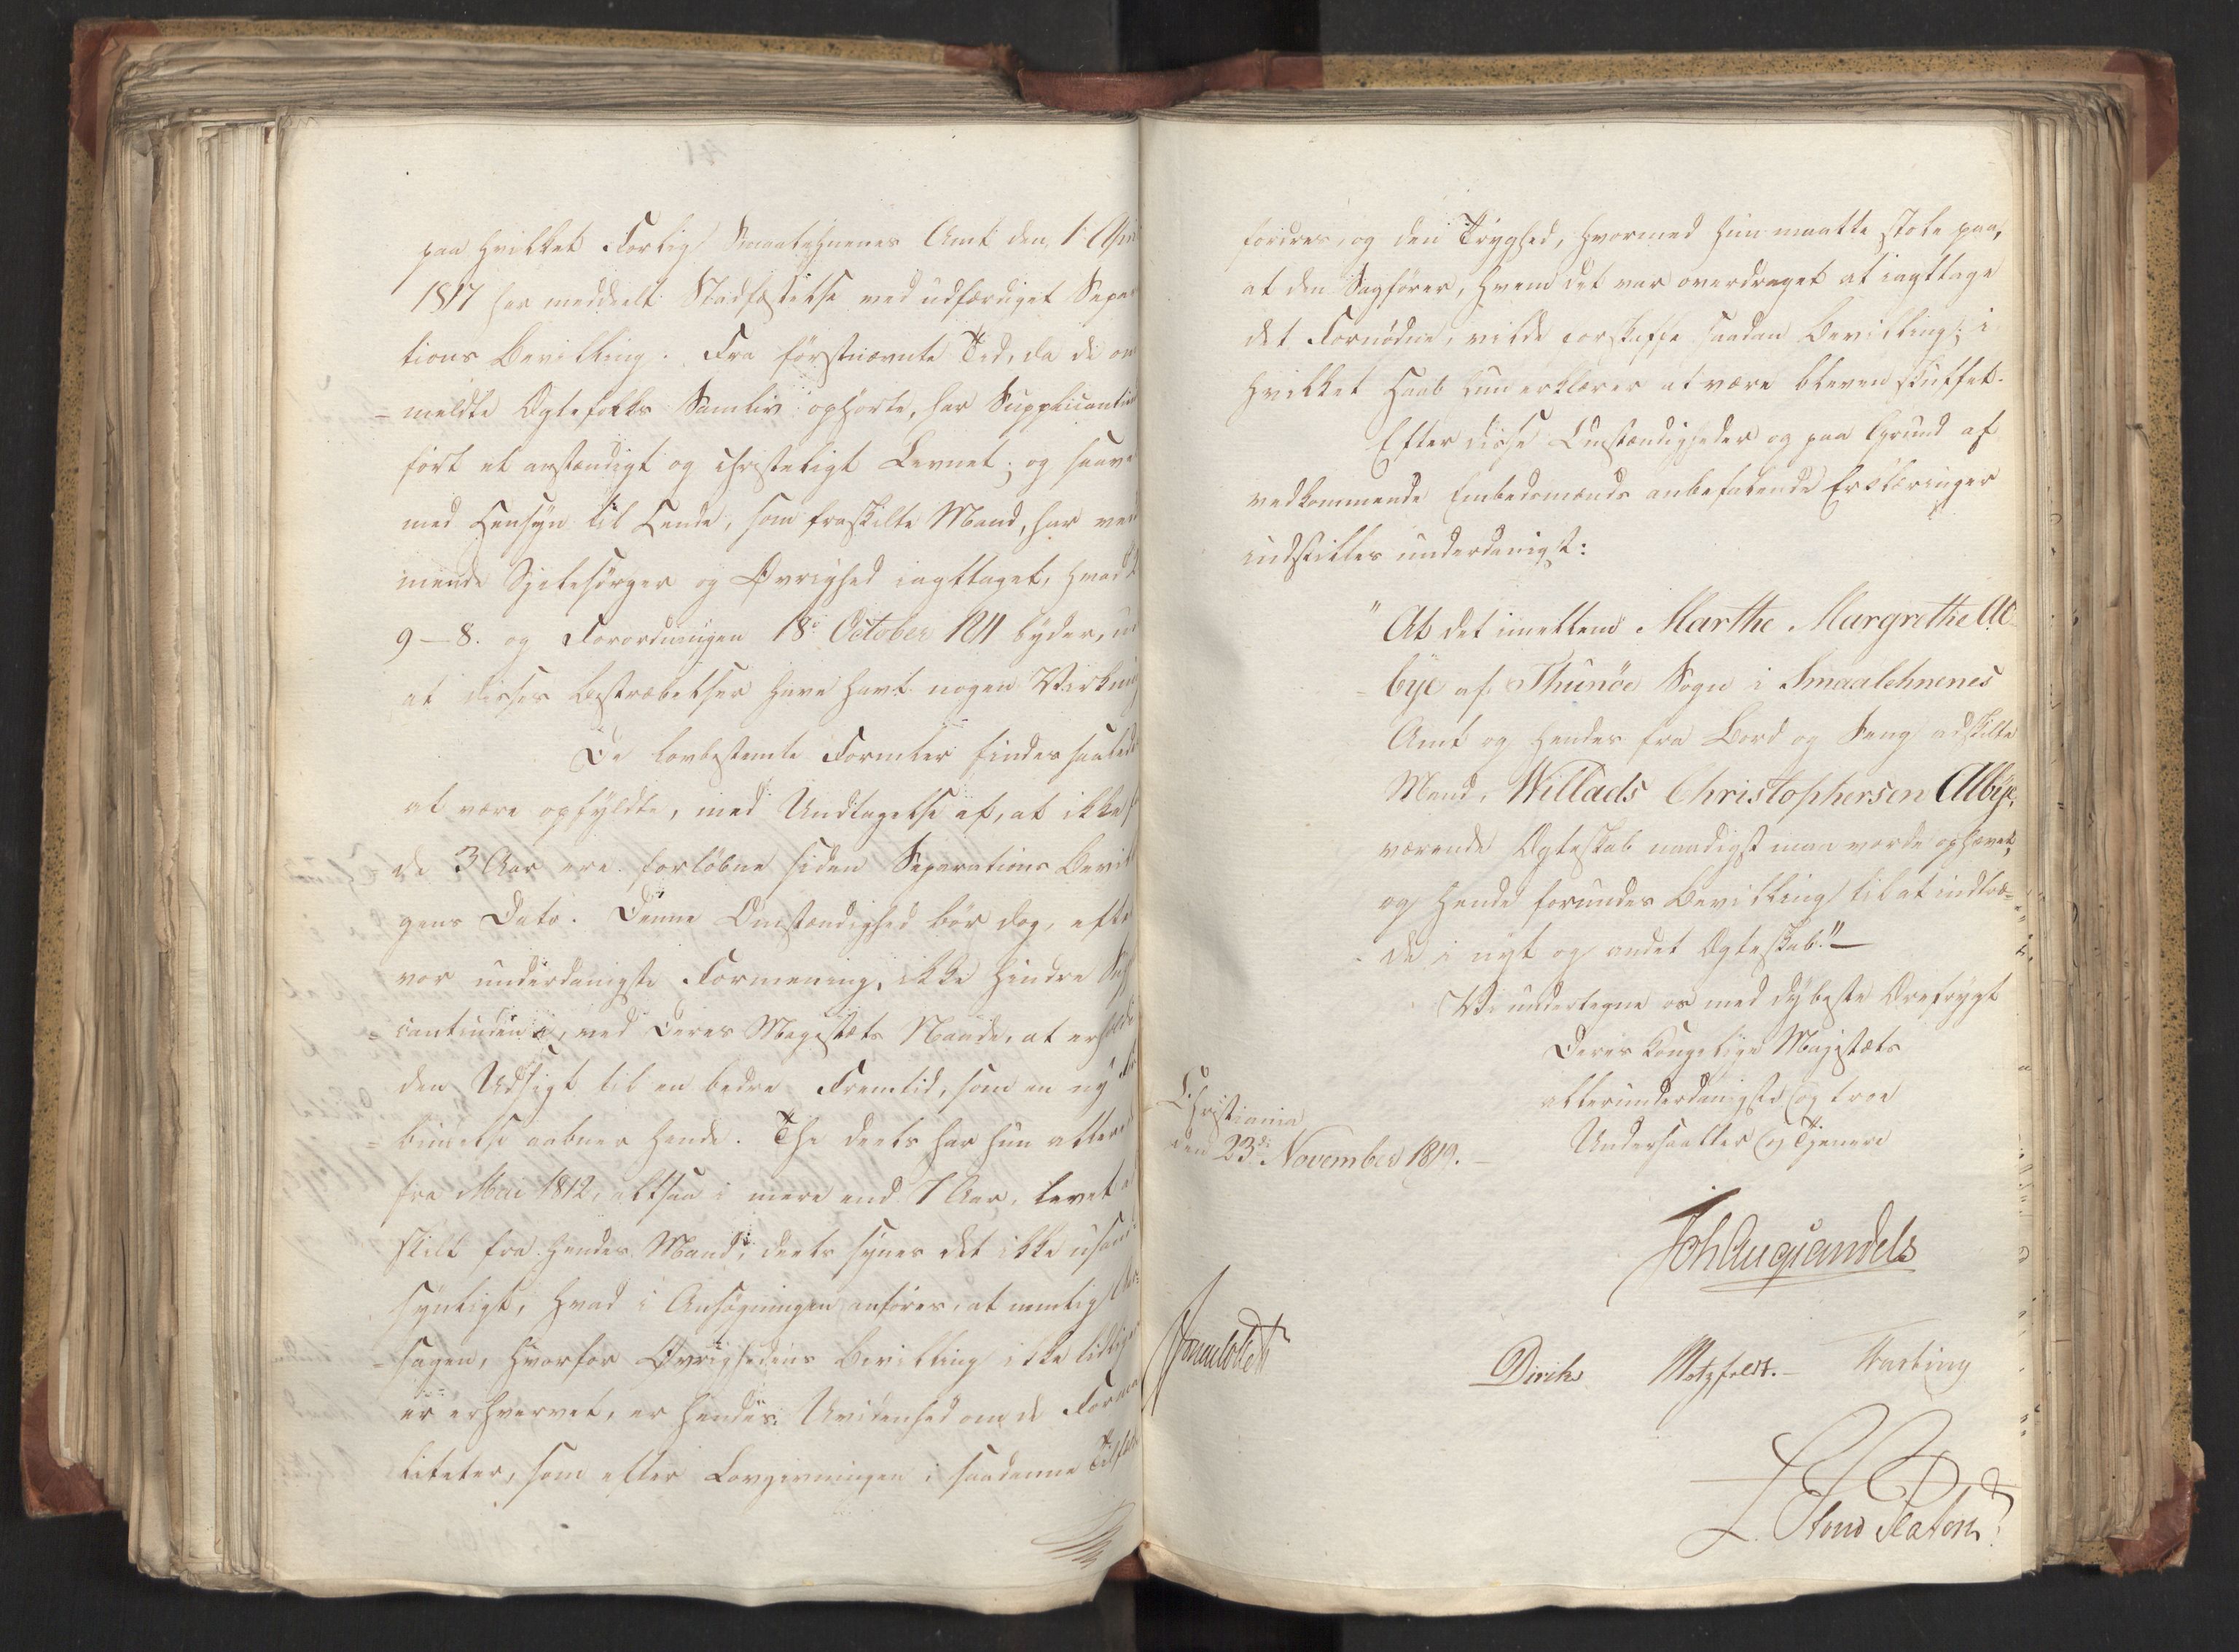 paa hvilket Forlig Smaalehnenes Amt den 1
1817 har meddeelt Stadfæstelse ved udfærdiget Sepa
tions Bevilling. Fra førstnævnte Tid, da de om
=meldte Ægtefolks Samliv ophørte, har Supplicantin
ført et anstændigt og christeligt Levnet; og saave
med Hensyn til Hende, som fraskilte Mand, har ved
mende Sjelesørger og Øvrighed iagttaget, hvad
9-8. og Forordningen 18de October 1811 byder, u
at disses Bestræbelser have havt nogen Virkning
De lovbestemte Formler findes saalede
at være opfyldte, med Undtagelse af, at ikke
de 3 Aar ere forløbne siden Separations Bevil
gens Dato. Denne Omstændighed bør dog, efte
vor underdanigste Formening, ikke hindre Sup
=cantinden i, ved Deres Majestæts Naade, at erholde
den Udsigt til en bedre Fremtid, som en ny For
=bindelse aabner hende. Thi deels har hun aller
fra Mai 1812, altsaa i mere end 7 Aar, levet a
skilt fra hendes Mand; deels synes det ikke usand
synligt, hvad i Ansøgningen anføres, at nemlig Aar=
=sagen, hvorfor Øvrighedens Bevilling ikke tidlige
er erhvervet, er hendes Uvidenhed om de Forma
liteter, som efter Lovgivningen i saadanne Tilfæl
fordres, og den Tryghed, hvormed hun maatte stole paa,
at den Sagfører, hvem det var overdraget at iagttage
det Fornødne, vilde forskaffe saadan Bevilling; i
hvilket Haab hun erklærer at være bleven skuffet.
Efter disse Omstændigheder og paa Grund af
vedkommende Embedsmænds anbefalende Erklæringer
indstilles underdanigst:
"At det imellem Marthe Margrethe Al
=bye af Thunöe Sogn i Smaalehnenes
Amt og hendes fra Bord og Seng adskilte
Mand, Willads Christophersen Albye,
værende Ægteskab naadigst maa vorde ophævet,
og hende forundes Bevilling til at indtræ=
de i nyt og andet Ægteskab."—
Vi undertegne os med dybeste Ærefrygt
Deres Kongelige Majestæts
allerunderdanigste og troe
Undersaatter og Tjenere
Christiania
den 23de November 1819.—
Joh Aug Sandels
Sommerfeldt
Diriks Motzfeldt.— Krebting
L. Stoud Platou